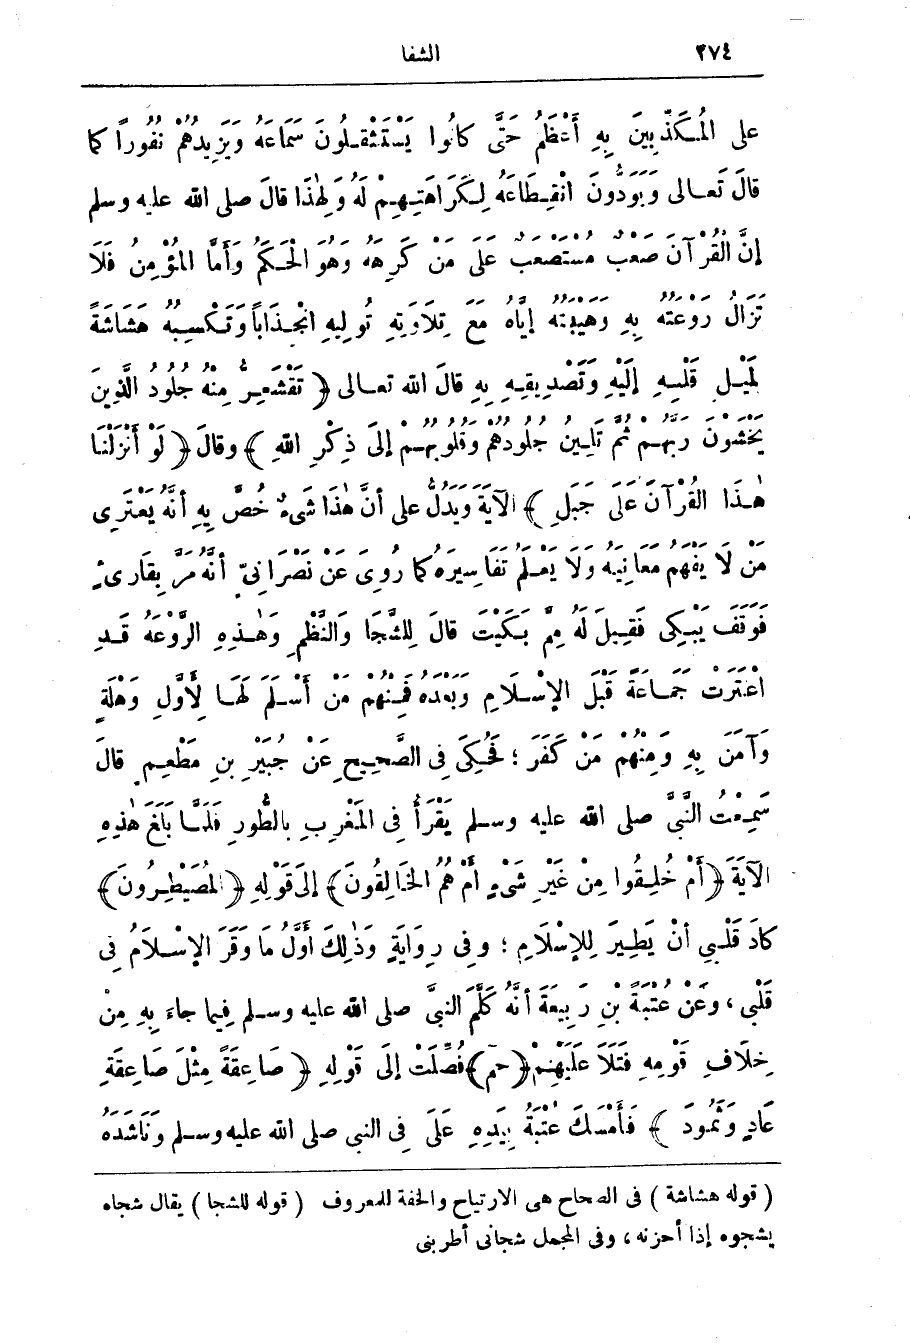 ٢٧٤
الشفا
على المُكَذِّبِينَ بِهِ أَعْظَمُ حَتَّى كانُوا يَسْتَثْقِلُونَ سَمَاعَهُ وَيَزِيدُهُمْ نُفُوراً كما
قالَ تَعالى وَيَوَدُّونَ انْقِطَاعَهُ لِكَرَاهَتِهِمْ لَهُ وَلِهٰذَا قالَ صلى الله عليه وسلم
إنَّ الْقُرْآنَ صَعْبٌ مُسْتَصْعَبٌ عَلَى مَنْ كَرِهَهُ وَهُوَ الْحَكَمُ وَأَمَّا المُؤْمِنُ فَلَا
تَزَالُ رَوْعَتُهُ بِهِ وَهَيْبَتُهُ إيَّاهُ مَعَ تِلَاوَتِهِ تُولِيهِ انْجِذَاباً وَتَكْسِبُهُ هَشَاشَةً
لِمَيْلِ قَلْبِهِ إلَيْهِ وَتَصْدِيقِهِ بِهِ قالَ الله تعالى ﴿ تَقْشَعِرُّ مِنْهُ جُلُودُ الَّذِينَ
يَخْشَوْنَ رَبَّهُمْ ثُمَّ تَلِينُ جُلُودُهُمْ وَقُلُوبُهُمْ إلَى ذِكْرِ اللهِ ﴾ وقالَ ﴿ لَوْ أَنْزَلْنَا
هٰذَا القُرْآنَ عَلَى جَبَلٍ ﴾ الآيَةَ وَيَدُلُّ على أنَّ هٰذَا شَىءٌ خُصَّ بِهِ أنَّهُ يَعْتَرِى
مَنْ لَا يَفْهَمُ مَعَانِيَهُ وَلَا يَعْلَمُ تَفَاسِيرَهُ كما رُوِىَ عَنْ نَصْرَانِىٍّ أنَّهُ مَرَّ بِقَارِئٍ
فَوَقَفَ يَبْكِى فَقِيلَ لَهُ مِمَّ بَكَيْتَ قالَ لِلشَّجَا وَالنَّظْمِ وَهٰذِهِ الرَّوْعَةُ قَدِ
اعْتَرَتْ جَمَاعَةً قَبْلَ الإسْلَامِ وَبَعْدَهُ فَمِنْهُمْ مَنْ أَسْلَمَ لَهَا لِأَوَّلِ وَهْلَةٍ
وَآمَنَ بِهِ وَمِنْهُمْ مَنْ كَفَرَ ؛ فَحُكِىَ فى الصَّحِيحِ عَنْ جُبَيْرِ بنِ مَطْعِمٍ قالَ
سَمِعْتُ النَّبىَّ صلى الله عليه وسلم يَقْرَأُ فى المَغْرِبِ بالطُّورِ فَلَمَّا بَلَغَ هٰذِهِ
الآيَةَ ﴿أَمْ خُلِقُوا مِنْ غَيْرِ شَىْءٍ أَمْ هُمُ الخَالِقُونَ﴾ إلَى قَوْلِهِ ﴿المُصَيْطِرُونَ﴾
كادَ قَلْبِي أنْ يَطِيرَ لِلإسْلَامِ ؛ وفى رِوَايَةٍ وَذٰلِكَ أَوَّلُ مَا وَقَرَ الإسْلَامُ فى
قَلْبِى ، وَعَنْ عُتْبَةَ بْنِ رَبِيعَةَ أنَّهُ كَلَّمَ النبىَّ صلى الله عليه وسلم فِيما جاءَ بِهِ مِنْ
خِلَافِ قَوْمِهِ فَتَلَا عَلَيْهِمْ ﴿حٓم﴾ فُصِّلَتْ إلَى قَوْلِهِ ﴿ صَاعِقَةً مِثْلَ صَاعِقَةِ
عَادٍ وَثَمُودَ ﴾ فَأَمْسَكَ عُتْبَةُ بِيَدِهِ عَلَى فى النبى صلى الله عليه وسلم وَنَاشَدَهُ
( قوله هشاشة ) فى الصحاح هى الارتياح والخفة للمعروف ( قوله للشجا ) يقال شجاه
يشجوه إذا أحزنه ، وفى المجمل شجانى أطربنى